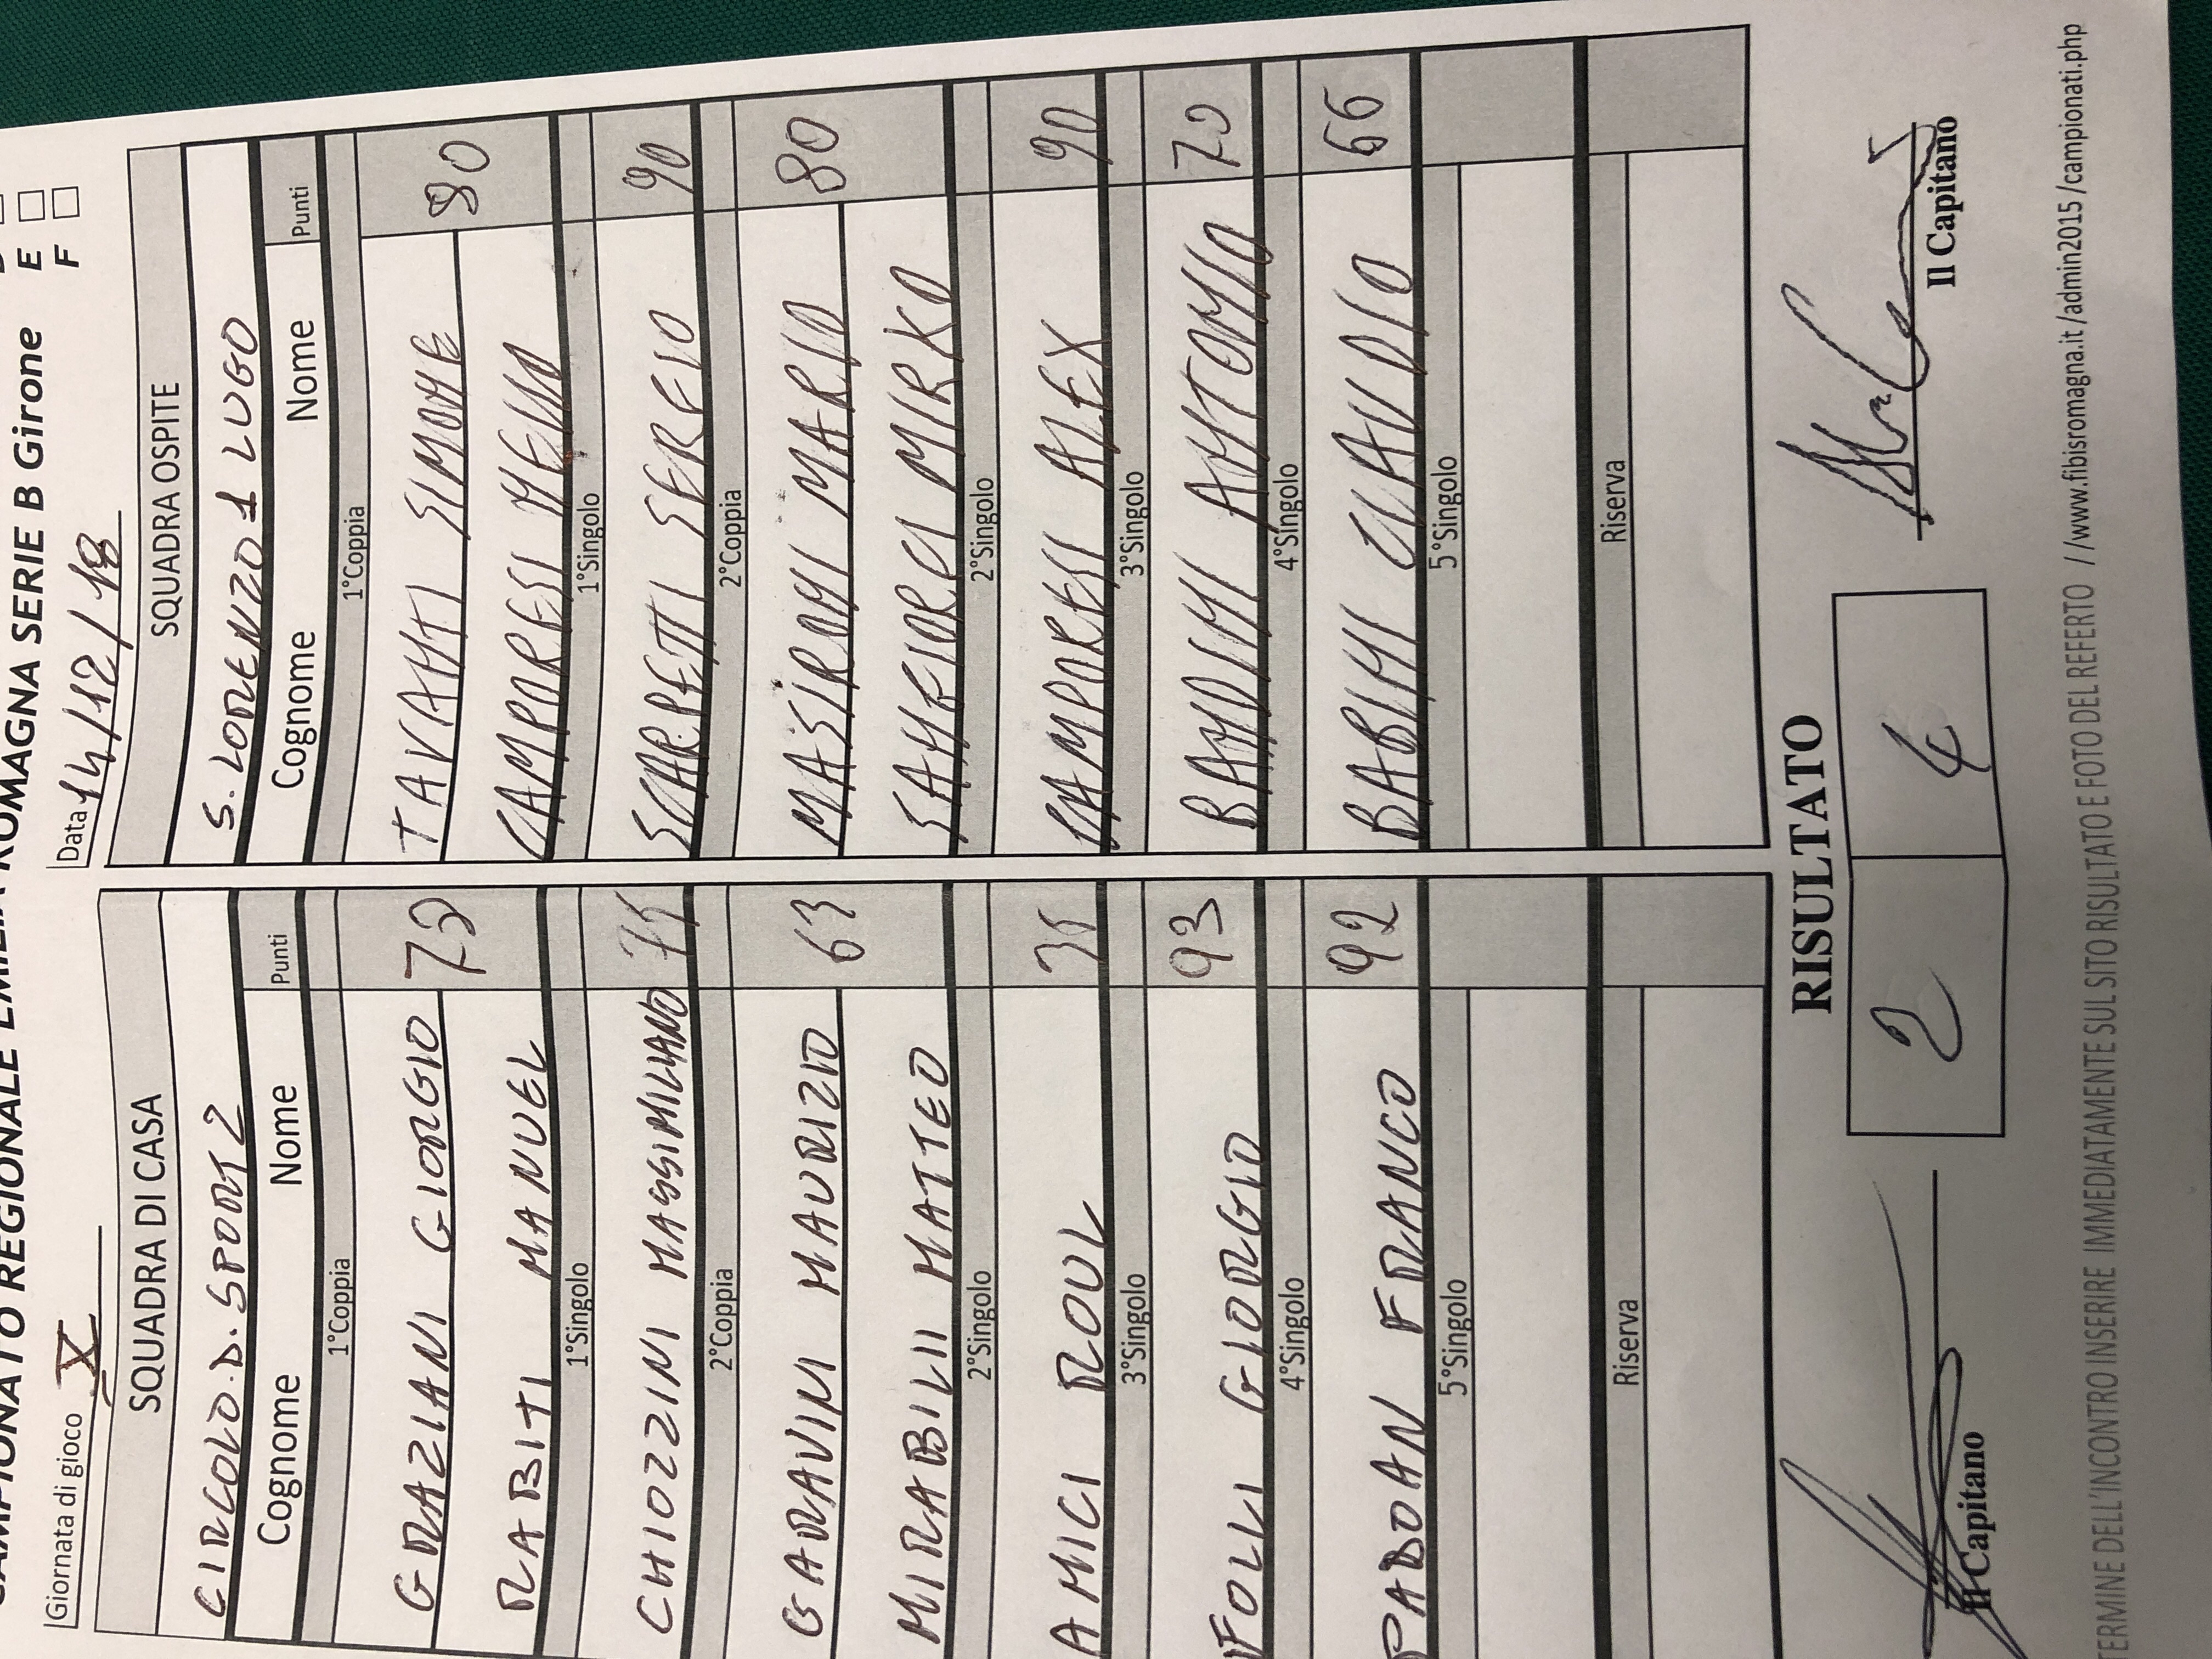 CAMPIONATO REGIONALE EMILIA ROMAGNA SERIE B Girone
E
F
Giornata di gioco X
Data 14/12/18
SQUADRA DI CASA
CIRCOLO.D.SPORT 2
Cognome Nome Punti
1°Coppia
GRAZIANI GIORGIO
RABITI MANUEL
1°Singolo
CHIOZZINI MASSIMILIANO 75
2°Coppia
GARAVINI MAURIZIO 63
MIRABILII MATTEO
2°Singolo
AMICI ROUL 35
3°Singolo
FOLLI GIORGIO 93
4°Singolo
PADOAN FRANCO 92
5°Singolo
Riserva
SQUADRA OSPITE
S. LORENZO 1 LUGO
Cognome Nome Punti
1°Coppia
TAVANTI SIMONE 80
CAMPORESI
1°Singolo
SCARPETTI SERGIO 90
2°Coppia
MASIRONI MARIO 80
SANGIORGI MIRKO
2°Singolo
CAMPORESI ALEX 90
3°Singolo
BANDINI ANTONIO 70
4°Singolo
BABINI CLAUDIO 66
5°Singolo
Riserva
RISULTATO
2 4
Il Capitano
Il Capitano
TERMINE DELL'INCONTRO INSERIRE IMMEDIATAMENTE SUL SITO RISULTATO E FOTO DEL REFERTO //www.fibisromagna.it/admin2015/campionati.php